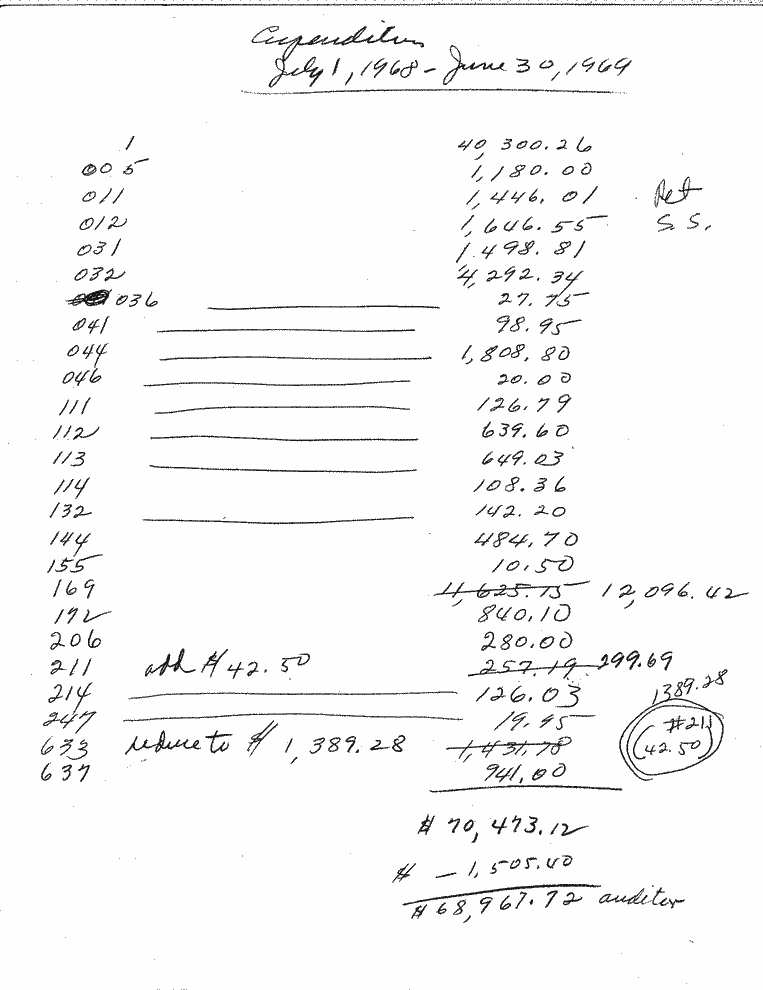 Expenditures
July 1, 1968 - June 30, 1969
1 40,300.26
005 1,180.00
011 1,446.01 Ret
012 1,646.55 S.S.
031 1,498.81
032 4,292.34
036 27.75
041 98.95
044 1,808.80
046 20.00
111 126.79
112 639.60
113 649.03
114 108.36
132 142.20
144 484.70
155 10.50
169 11,625.75 12,096.42
192 840.10
206 280.00
211 add $42.50 257.19 299.69
214 126.03 1389.28
247 19.95 #211
633 reduce to $1,389.28 1,431.78 (42.50)
637 941.00
$70,473.12
$ - 1,505.40
$68,967.72 auditor